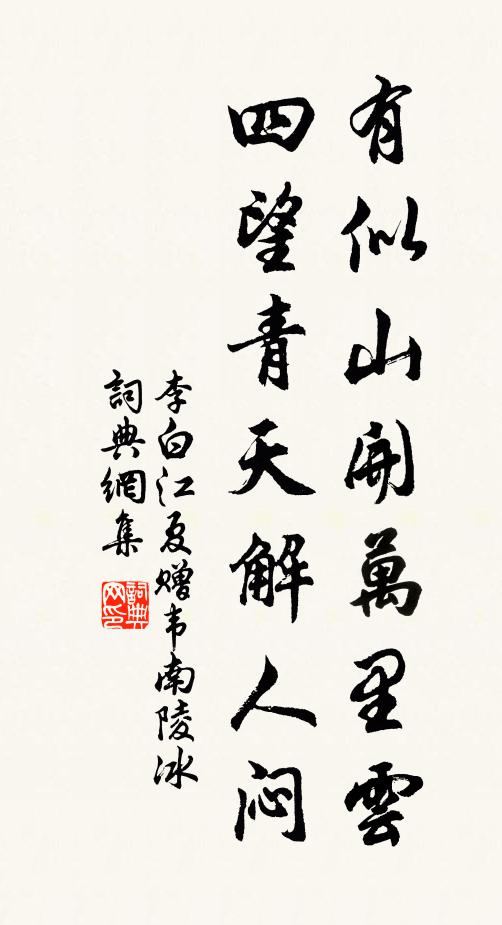 有似山開萬里雲
四望青天解人闷
李白江夏赠韦南陵冰
詞典網集
詞典网印